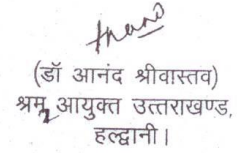 (डॉ आनंद श्रीवास्तव)
श्रम आयुक्त उत्तराखण्ड,
हल्द्वानी।